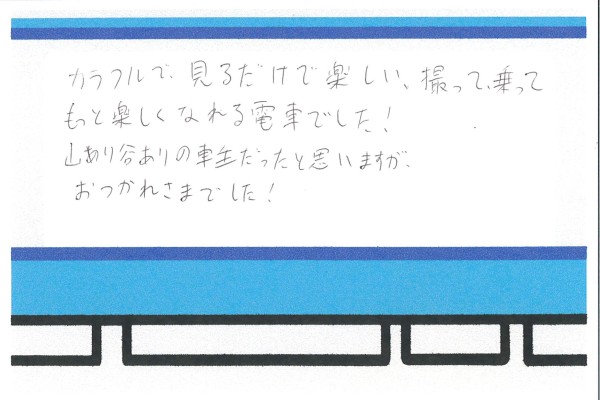 カラフルで、見るだけで楽しい、撮って、乗って
もっと楽しくなれる電車でした！
山あり谷ありの車生だったと思いますが、
おつかれさまでした！